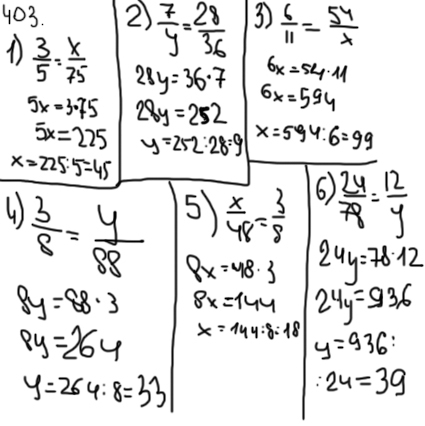 403.
1) 3/5 = x/75
5x=3·75
5x=225
x=225:5=45
2) 7/y = 28/36
28y=36·7
28y=252
y=252:28=9
3) 6/11 = 54/x
6x=54·11
6x=594
x=594:6=99
4) 3/8 = y/88
8y=88·3
8y=264
y=264:8=33
5) x/48 = 3/8
8x=48·3
8x=144
x=144:8=18
6) 24/78 = 12/y
24y=78·12
24y=936
y=936:
:24=39